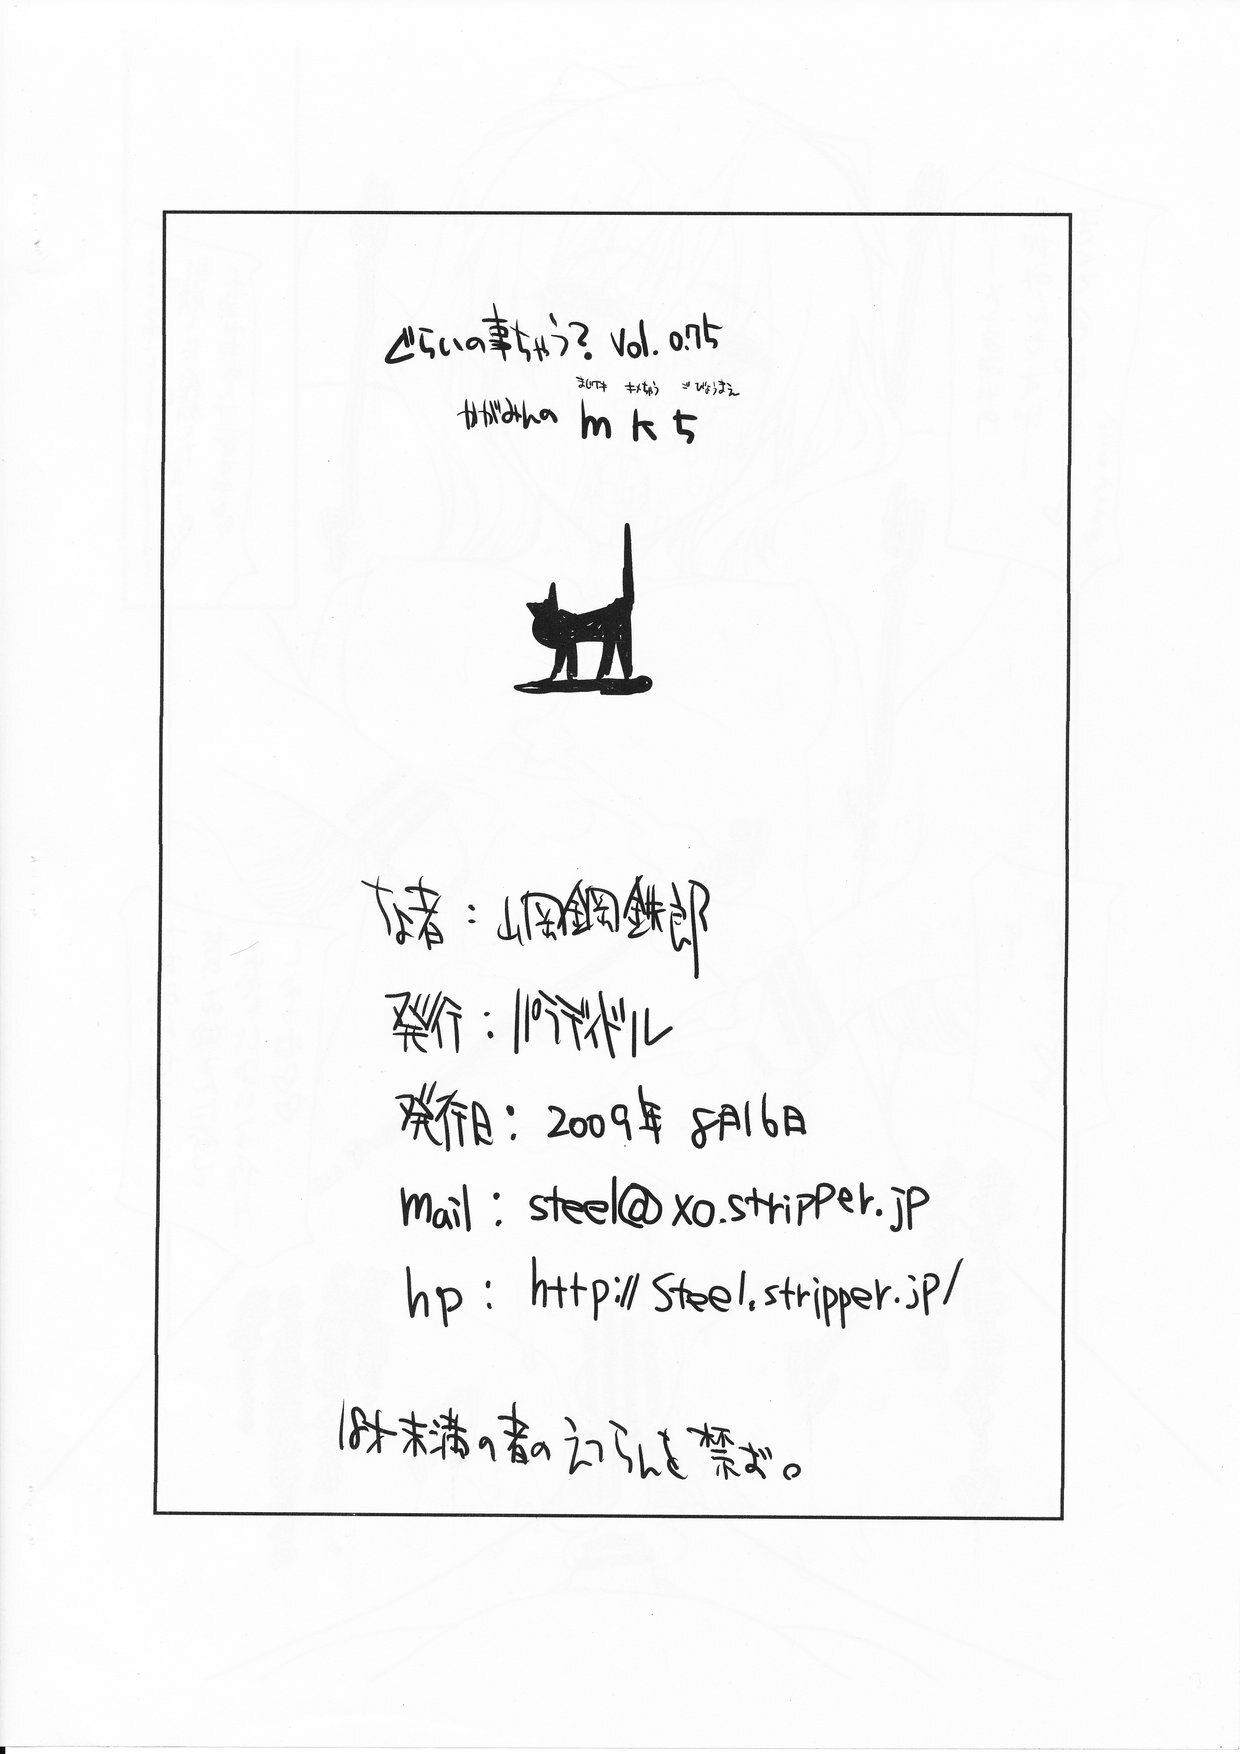 ぐらいの事ちゃう? Vol. 0.75
まじでキ キメちゃう ご びょうまえ
かがみんの mk5
なよ者 : 山岡鋼鉄郎
発行 : パラディドル
発行日 : 2009年 8月16日
mail : steel@xo.stripper.jp
hp : http://steel.stripper.jp/
18才未満の者のえつらんを禁ず。